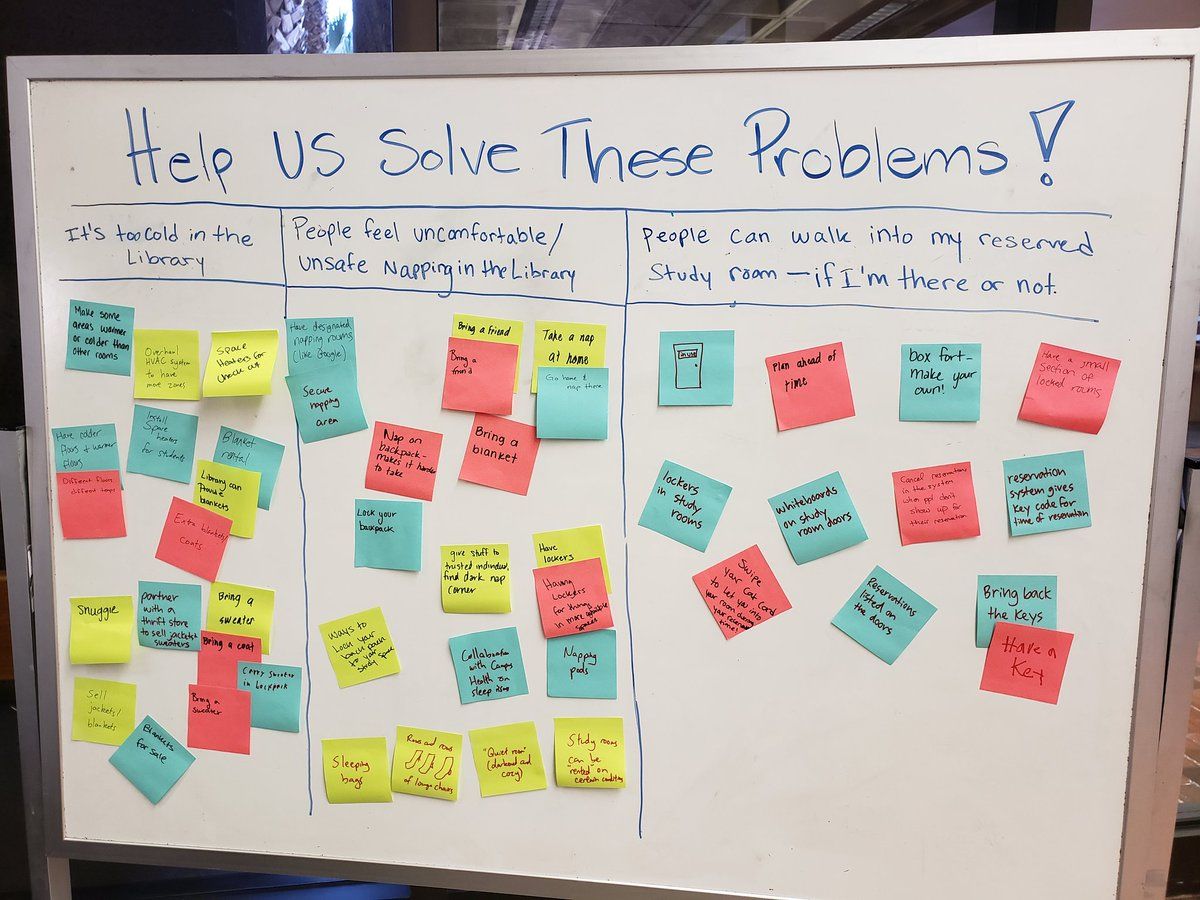 Help US Solve These Problems!
It's too cold in the
Library
People feel uncomfortable/
unsafe Napping in the Library
People can walk into my reserved
Study room — if I'm there or not.
Make some
areas warmer
or colder than
other rooms
Overhaul
HVAC system
to have
more zones
Space
Heaters for
check out
Have colder
floors & warmer
floors
Different floors
different temps
Install
Space
heaters
for students
Blanket
rental
Library can
Provide
blankets
Extra blankets/
coats
Snuggie
partner
with a
thrift store
to sell jackets/
sweaters
Bring a
sweater
Bring a coat
Carry sweater
in backpack
Bring a
sweater
Sell
jackets/
blankets
Blankets
for sale
Have designated
napping rooms
(like Google)
Secure
napping
area
Bring a friend
Bring a
friend
Take a nap
at home
Go home &
nap there
Nap on
backpack-
makes it harder
to take
Bring a
blanket
Lock your
backpack
give stuff to
trusted individual,
find dark nap
corner
Have
lockers
Having
Lockers
for things
in more
spaces
Ways to
Lock your
backpack
to your
study space
Collaboration
with Campus
Health on
sleep
Napping
pods
Sleeping
bags
Rows and rows
of lounge chairs
"Quiet room"
(darkened and
cozy)
Study rooms
can be
"rented" on
certain conditions
In use
Plan ahead of
time
box fort-
make your
own!
Have a small
section of
locked rooms
lockers
in study
rooms
whiteboards
on study
room doors
Cancel reservations
in the system
when ppl don't
show up for
their reservation
reservation
system gives
key code for
time of reservation
Swipe
your Cat Card
to let you into
your room during
your reservation
time!
Reservations
listed on
the doors
Bring back
the keys
Have a
Key